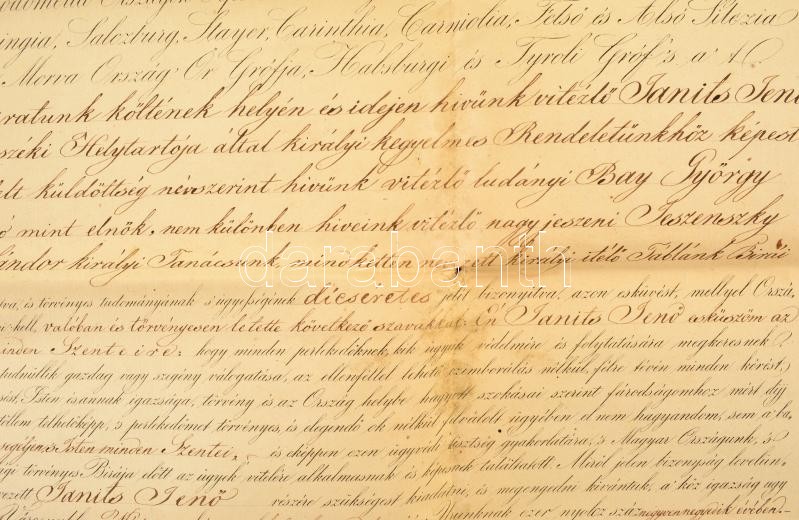 ingia, Salczburg, Stayer, Carinthia, Carniolia, Felső és Alsó Silezia
Morva Ország' Őr Grófja, Habsburgi és Tyroli Gróf 's a' t.
iratunk költének helyén és idején hivünk vitézlő Janits Jenő
széki Helytartója által királyi kegyelmes Rendeletünkhöz képest
küldöttség névszerint hivünk vitézlő ludányi Bay György
mint elnök, nem különben hiveink vitézlő nagy jeszeni Jeszenszky
Sándor királyi Tanácsunk, mind ketten nevezett királyi itélő Táblánk Birái
darabanth
és törvényes tudományának s' ügyességének dicséretes jelét bizonyitva, azon esküvést, mellyel Orszá,
kell, valóban és törvényesen letette következő szavakkal: Én Janits Jenő esküszöm az
minden Szenteire: hogy minden perlekedőknek, kik ügyük védelmére és folytatására megkeresnek
gazdag vagy szegény válogatása, az ellenféllel lehető nélkül, félre tévén minden kérést,
Isten és annak igazsága, törvény és az Ország helybe hagyott szokásai szerint fáradságomhoz mért díj
tőllem telhetőképp, s perlekedőmet törvényes, és elegendő ok nélkül fölvállalt ügyében el nem hagyandom, sem a' ba,
segéljen Isten minden Szentei. és ekképpen ezen ügyvédi tisztség gyakorlatára, s' Magyar Országunk, s'
törvényes Birája előtt az ügyek vitelére alkalmasnak és képesnek találtatott. Miről jelen bizonyság levelün,
Janits Jenő részére szükségest kiadatni, és megengedni kivántuk, a' köz igazság úgy
Urunknak ezer nyolcz száz negyvennegyedik évében.